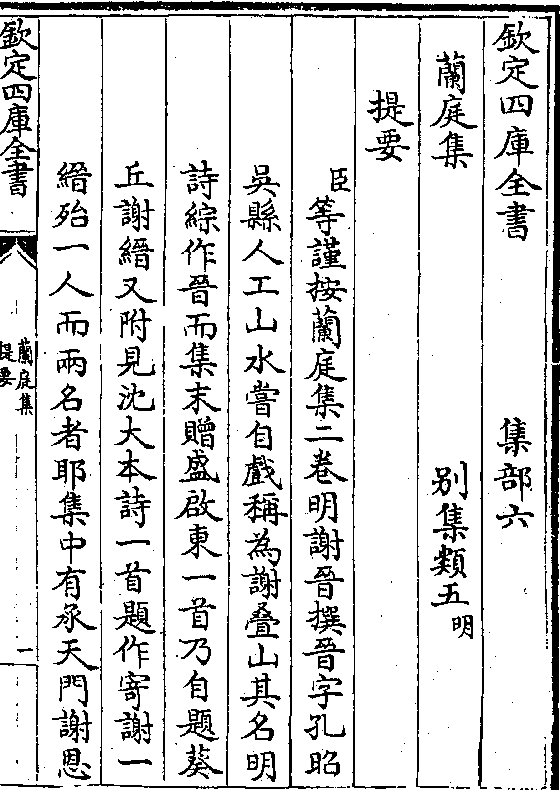 欽定四庫全書 集部六
蘭庭集 别集類五明
提要
臣等謹按蘭庭集二卷明謝晉撰晉字孔昭
吳縣人工山水嘗自戲稱為謝叠山其名明
詩綜作晉而集末贈盛啟東一首乃自題葵
丘謝縉又附見沈大本詩一首題作寄謝一
縉殆一人而兩名者耶集中有承天門謝恩
欽定四庫全書
蘭庭集
提要
一